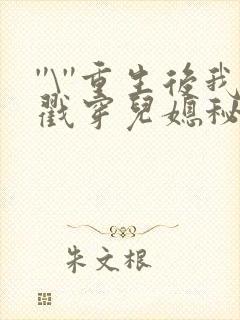 "\"重生後我
戳穿兒媳秘
朱文根